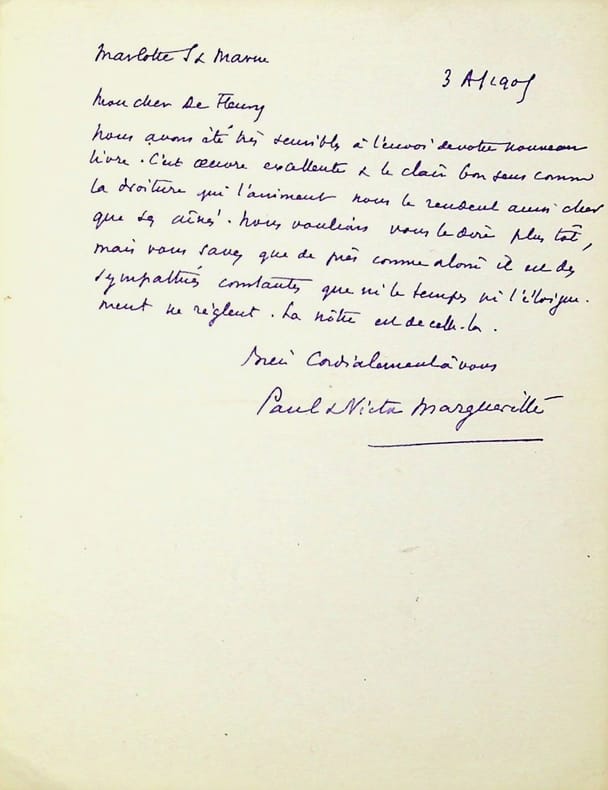 Marlotte S & Marne
3 A 1905
Mon cher de Fleury
Nous avons été très sensibles à l'envoi de votre nouveau
livre. C'est œuvre excellente & le clair bon sens comme
la droiture qui l'animent nous le rendent aussi cher
que ses aînés. Nous voulions vous le dire plus tôt,
mais vous savez que de près comme il est des
sympathies constantes que ni le temps ni l'éloigne-
ment ne règlent. La nôtre est de celle-là.
Bien Cordialement à vous
Paul & Victor Margueritte